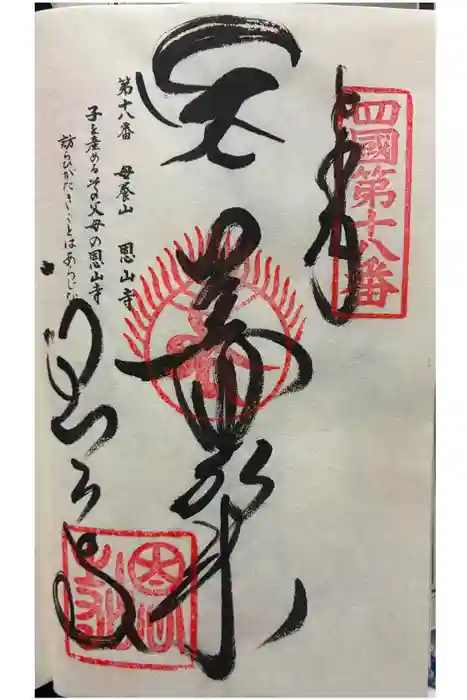 四國第十八番
奉拝
薬師如来
恩山寺
第十八番 母養山 恩山寺
子を産めるその父母の恩山寺
訪らひがたきことはあらじな